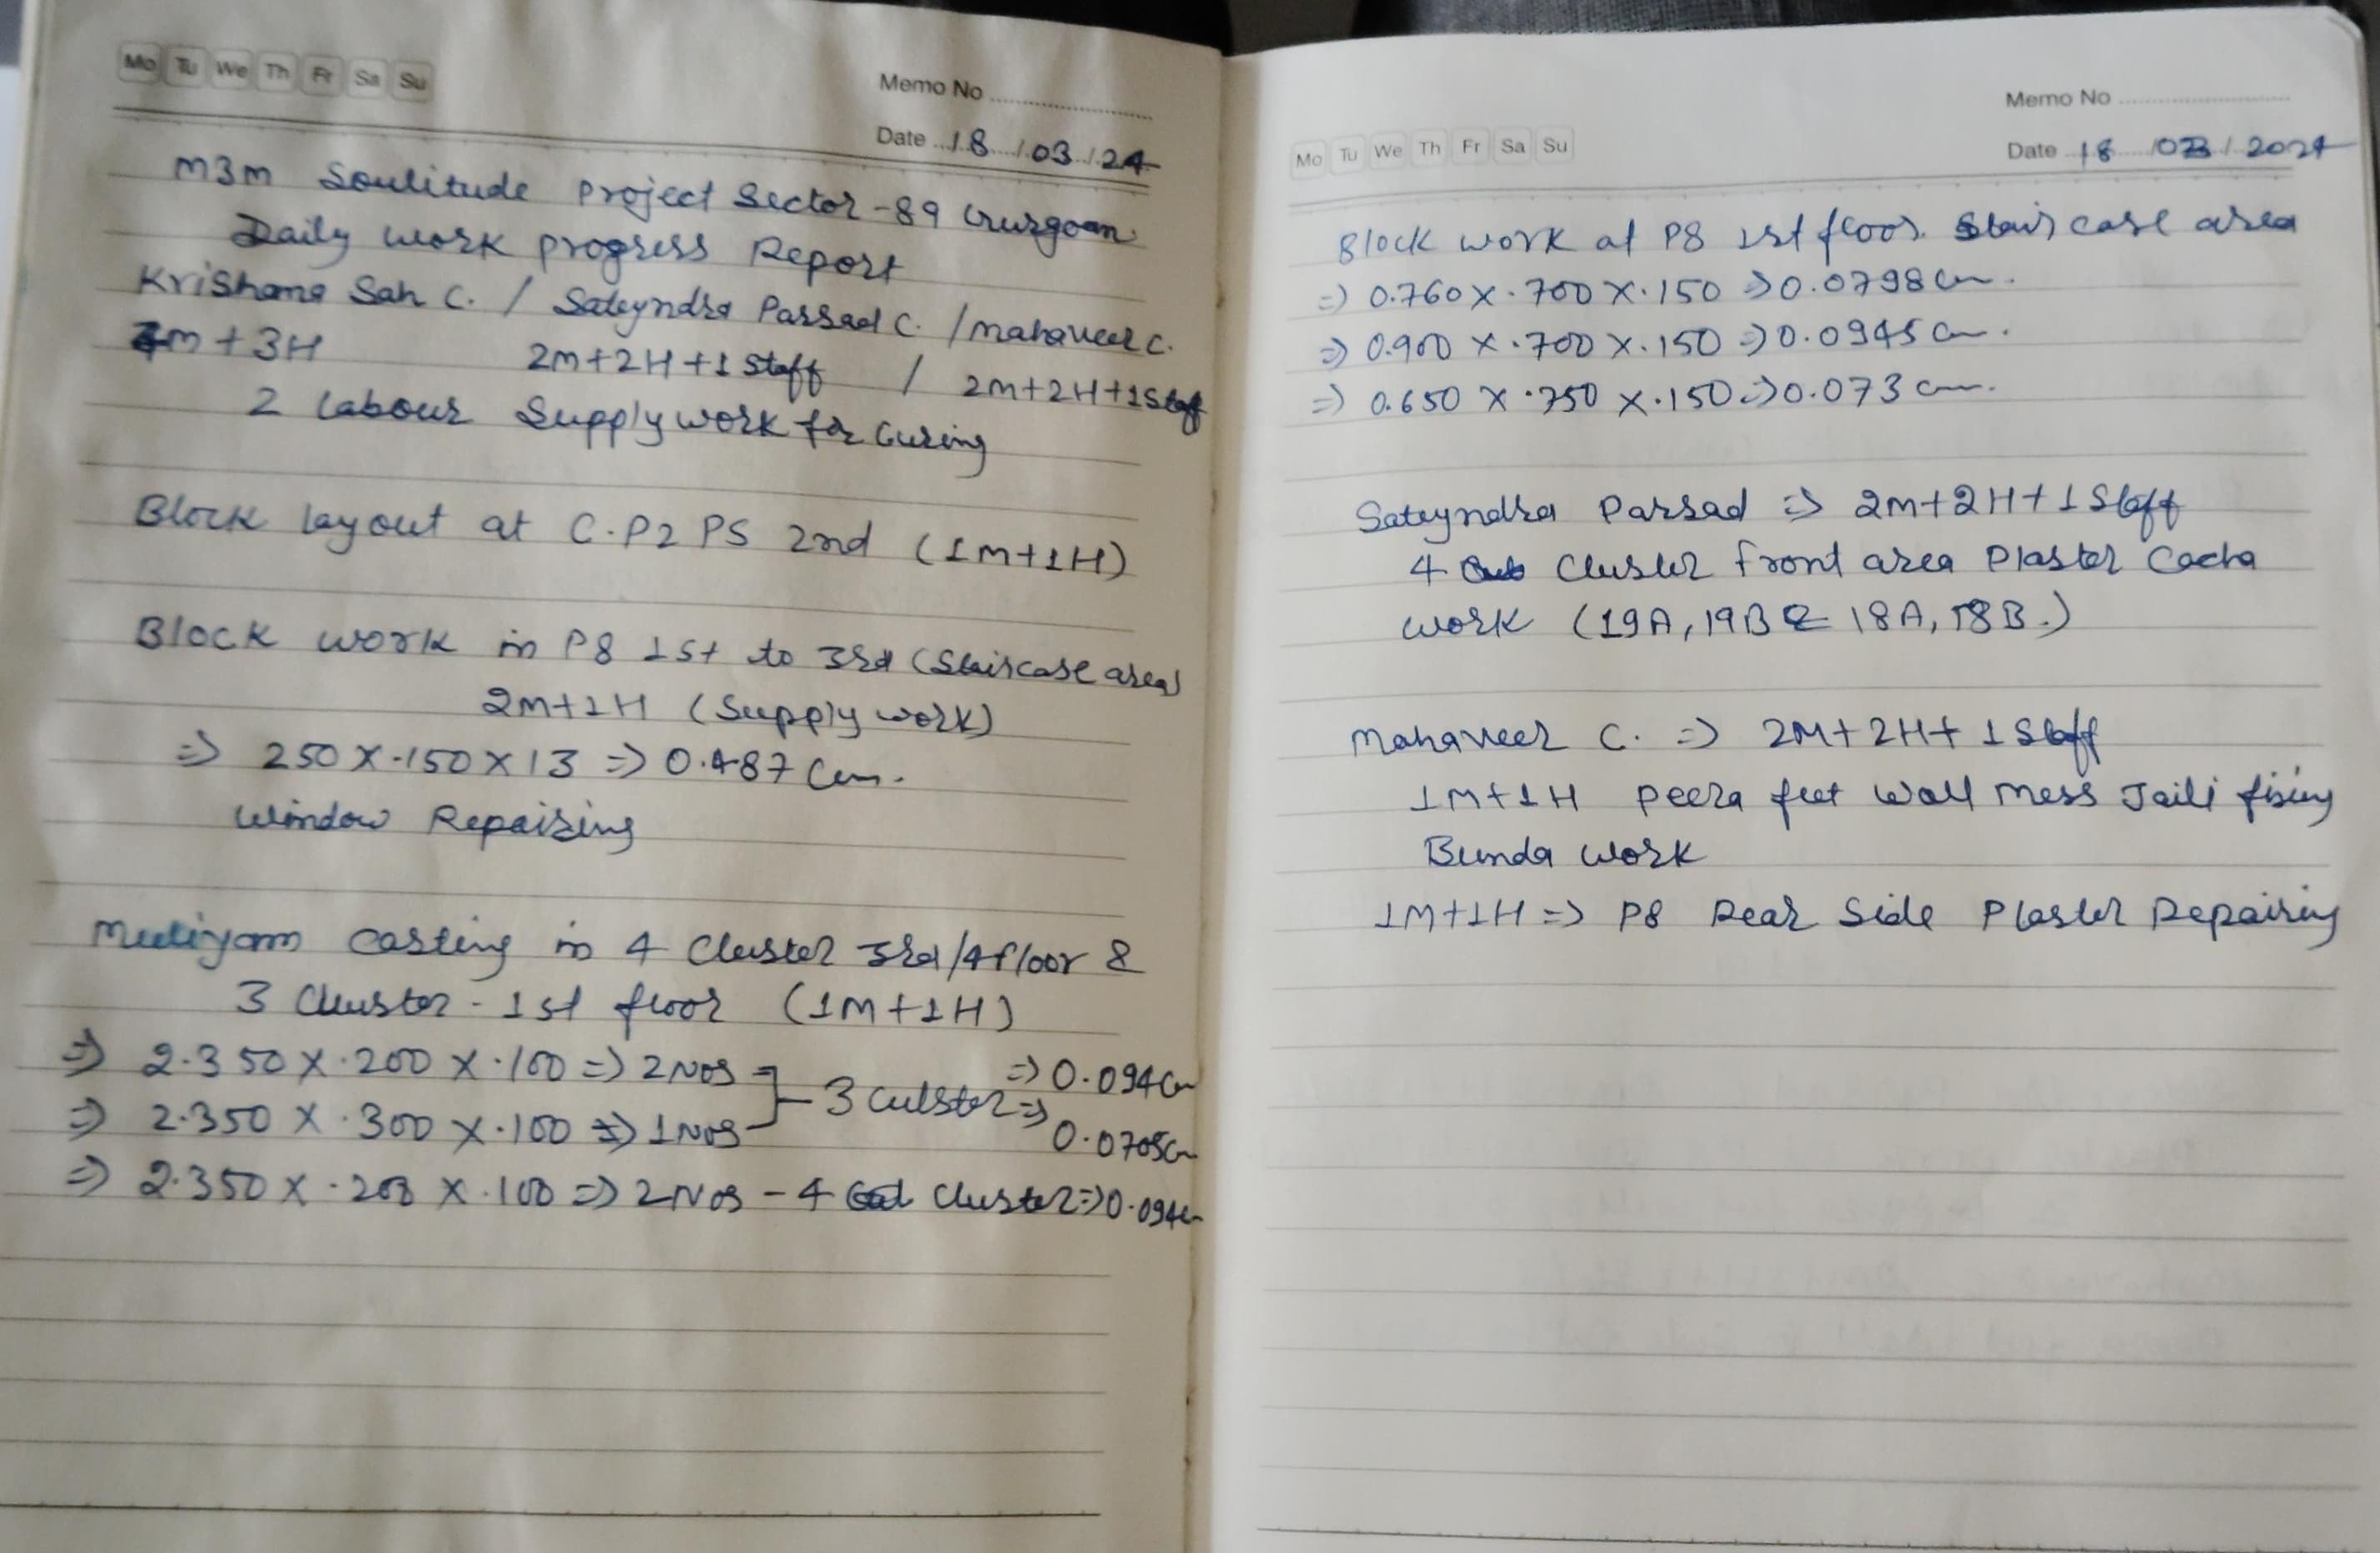 Mo Tu We Th Fr Sa Su
Memo No
Date 18/03/24
M3m Soulitude Project Sector-89 Gurgoan
Daily work progress Report
Krishana Sah C. / Sateyndra Passad C. / mahaveer c.
4m+3H 2m+2H+1 Staff / 2m+2H+1Staff
2 labour Supply work for Curing
Block layout at C.P2 PS 2nd (1M+1H)
Block work in P8 1st to 3rd (Staircase area)
2m+1H (Supply work)
=> 250 X .150 X 13 => 0.487 Cum.
Window Repairing
casting in 4 Cluster 3rd/4floor &
3 Cluster - 1st floor (1M+1H)
=> 2.350 X .200 X .100 => 2 Nos => 0.094Cum
3 culster =>
=> 2.350 X .300 X .100 => 1 Nos 0.0705Cum
=> 2.350 X .200 X .100 => 2 Nos - 4 Cluster => 0.094cum
Memo No
Date 18/03/2024
Mo Tu We Th Fr Sa Su
Block work at P8 1st floor. Stair case area
=> 0.760 X .700 X .150 => 0.0798 Cum.
=> 0.900 X .700 X .150 => 0.0945 cum.
=> 0.650 X .750 X .150 => 0.073 cum.
Sateyndra Parsad => 2m+2H+1 Staff
4 Cluster front area Plaster Cacha
work (19A, 19B & 18A, 18B.)
Mahaveer C. => 2M+2H+1 Staff
1M+1H Peera feet Wall mess Jaili fixing
Bunda work
1M+1H => P8 Rear Side Plaster Repairing